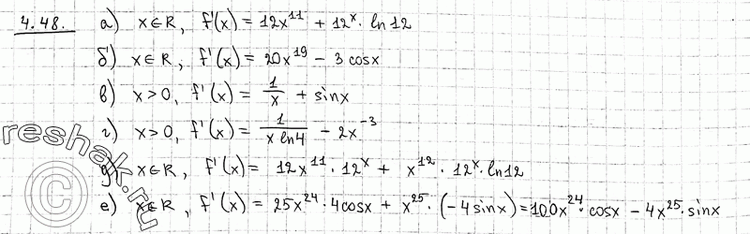 4.48. а) x∈R, f'(x) = 12x¹¹ + 12ˣ · ln 12
б) x∈R, f'(x) = 20x¹⁹ - 3 cosx
в) x>0, f'(x) = 1/x + sinx
г) x>0, f'(x) = 1/(x ln4) - 2x⁻³
д) x∈R, f'(x) = 12x¹¹ · 12ˣ + x¹² · 12ˣ · ln 12
е) x∈R, f'(x) = 25x²⁴ · 4cosx + x²⁵ · (-4 sinx) = 100x²⁴ · cosx - 4x²⁵ · sinx
reshak.ru